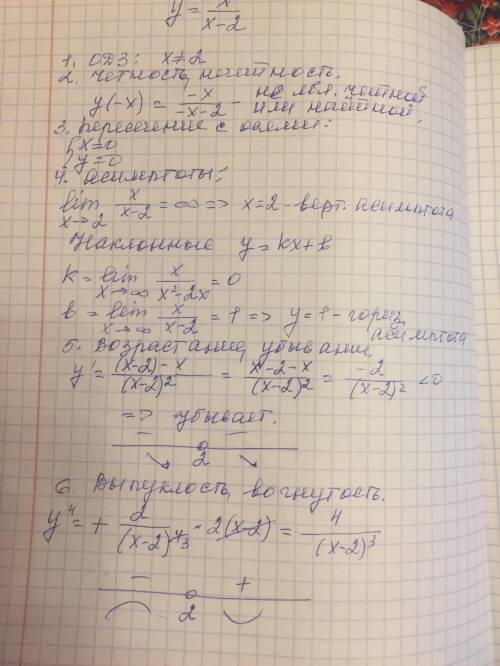 y = x/(x-2)
1. ОДЗ: x≠2
2. Четность, нечетность.
y(-x) = -x/(-x-2) - не явл. четной
или нечётной.
3. Пересечение с осями:
{ x=0
y=0
4. Асимптоты:
lim x→2 x/(x-2) = ∞ => x=2 - верт. асимптота
Наклонные y=kx+b
k = lim x→∞ x/(x²-2x) = 0
b = lim x→∞ x/(x-2) = 1 => y=1 - гориз.
асимптота
5. Возрастание, убывание,
y' = ((x-2)-x)/(x-2)² = (x-2-x)/(x-2)² = -2/(x-2)² <0
=> убывает.
- -
2
6. Выпуклость, вогнутость.
y'' = + 2/(x-2)^4 3 · 2(x-2) = 4/(x-2)³
- +
2